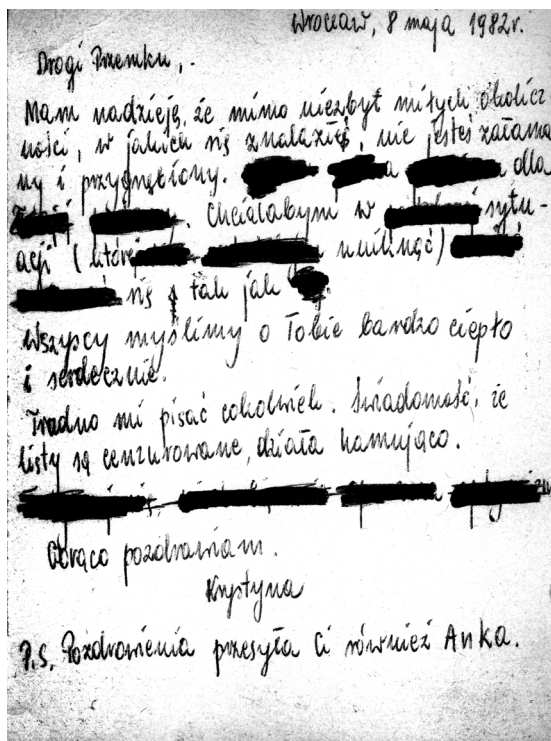 Wrocław, 8 maja 1982r.
Drogi Przemku,
Mam nadzieję, że mimo niezbyt miłych okolicz
ności, w jakich się znalazłeś, nie jesteś załama
ny i przygnębiony. dla
Chciałabym w sytu-
acji ( której uniknąć)
się tak jak
Wszyscy myślimy o Tobie bardzo ciepło
i serdecznie.
Trudno mi pisać cokolwiek. Świadomość, że
listy są cenzurowane, działa hamująco.
Gorąco pozdrawiam.
Krystyna
P.S. Pozdrowienia przesyła Ci również Anka.